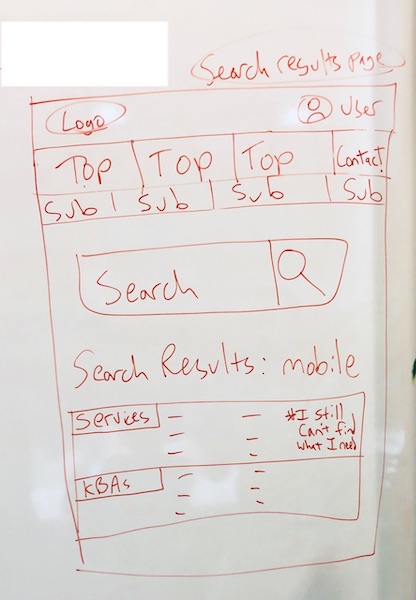 Search results page
Logo User
Top Top Top Contact
Sub Sub Sub Sub
Search
Search Results: mobile
Services *I still
Can't find
what I need
KBAs